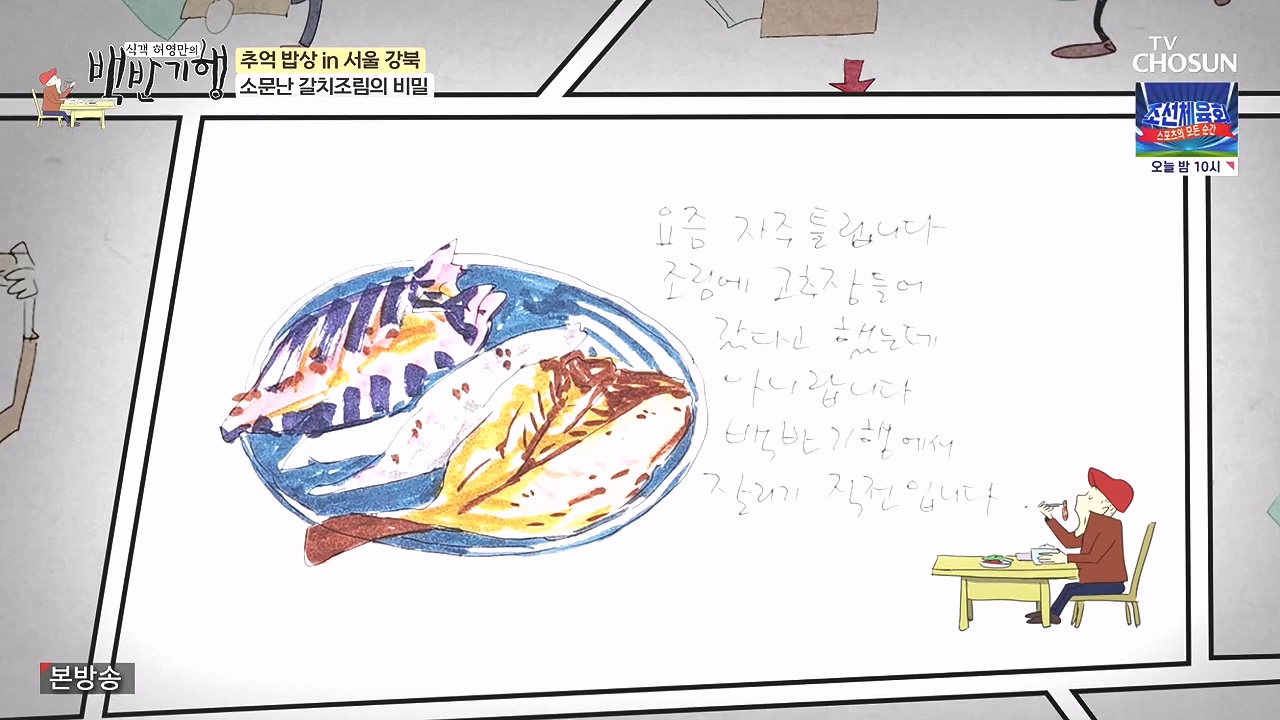 식객 허영만의
백반기행
추억 밥상 in 서울 강북
소문난 갈치조림의 비밀
TV
CHOSUN
조선체육회
스포츠의 모든 순간
오늘 밤 10시
요즘 자주 틀립니다
조림에 고추장 들어
갔다고 했는데
아니랍니다
백반기행에서
잘리기 직전입니다
본방송